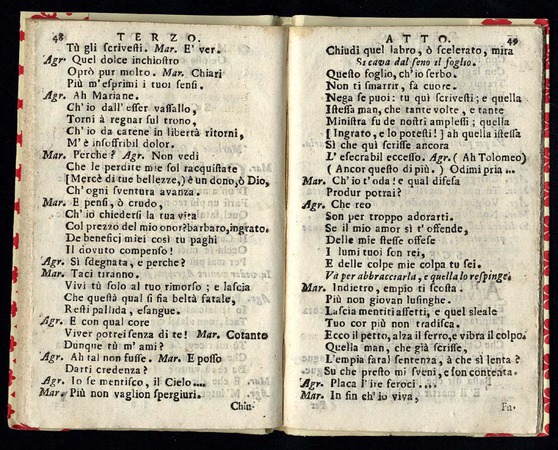 48 TERZO.
Tù gli scrivesti. Mar. E' ver.
Agr. Quel dolce inchiostro
Oprò pur molto. Mar. Chiari
Più m'esprimi i tuoi sensi.
Agr. Ah Mariane.
Ch'io dall'esser vassallo,
Torni à regnar sul trono,
Ch'io da catene in libertà ritorni,
M'è insoffribil dolor.
Mar. Perche? Agr. Non vedi
Che le perdite mie sol racquistate
[Mercè di tue bellezze,) è un dono, ò Dio,
Ch'ogni sventura avanza.
Mar. E pensi, ò crudo,
Ch'io chiedersi la tua vita
Col prezzo del mio onor? barbaro, ingrato.
De benefici miei così tu paghi
Il dovuto compenso!
Agr. Sì sdegnata, e perche?
Mar. Taci tiranno.
Vivi tù solo al tuo rimorso; e lascia
Che questa qual si sia beltà fatale,
Resti pallida, esangue.
Agr. E con qual core
Viver potrei senza di te! Mar. Cotanto
Dunque tù m'ami?
Agr. Ah tal non fusse. Mar. E posso
Darti credenza?
Agr. Io se mentisco, il Cielo....
Mar. Più non vaglion spergiuri.
Chiu-
ATTO. 49
Chiudi quel labro, ò scelerato, mira
Si cava dal seno il foglio.
Questo foglio, ch'io serbo.
Non ti smarrir, fa cuore.
Nega se puoi: tu quì scrivesti; e quella
Istessa man, che tante volte, e tante
Ministra fu de nostri amplessi; quella
[ Ingrato, e lo potesti! ] ah quella istessa
Sì che quì scrisse ancora
L'esecrabil eccesso. Agr. ( Ah Tolomeo)
( Ancor questo di più. ) Odimi pria ...
Mar. Ch'io t'oda! e qual difesa
Produr potrai?
Agr. Che reo
Son per troppo adorarti.
Se il mio amor sì t'offende,
Delle mie stesse offese
I lumi tuoi son rei,
E delle colpe mie colpa tu sei.
Va per abbracciarla, e quella lo respinge.
Mar. Indietro, empio ti scosta.
Più non giovan lusinghe.
Lascia mentiti affetti, e quel sleale
Tuo cor più non tradisca.
Ecco il petto, alza il ferro, e vibra il colpo.
Quella man, che già scrisse,
L'empia fatal sentenza, à che sì lenta?
Su che presto mi sveni, e son contenta.
Agr. Placa l'ire feroci ....
Mar. In sin ch'io viva,
Fu-